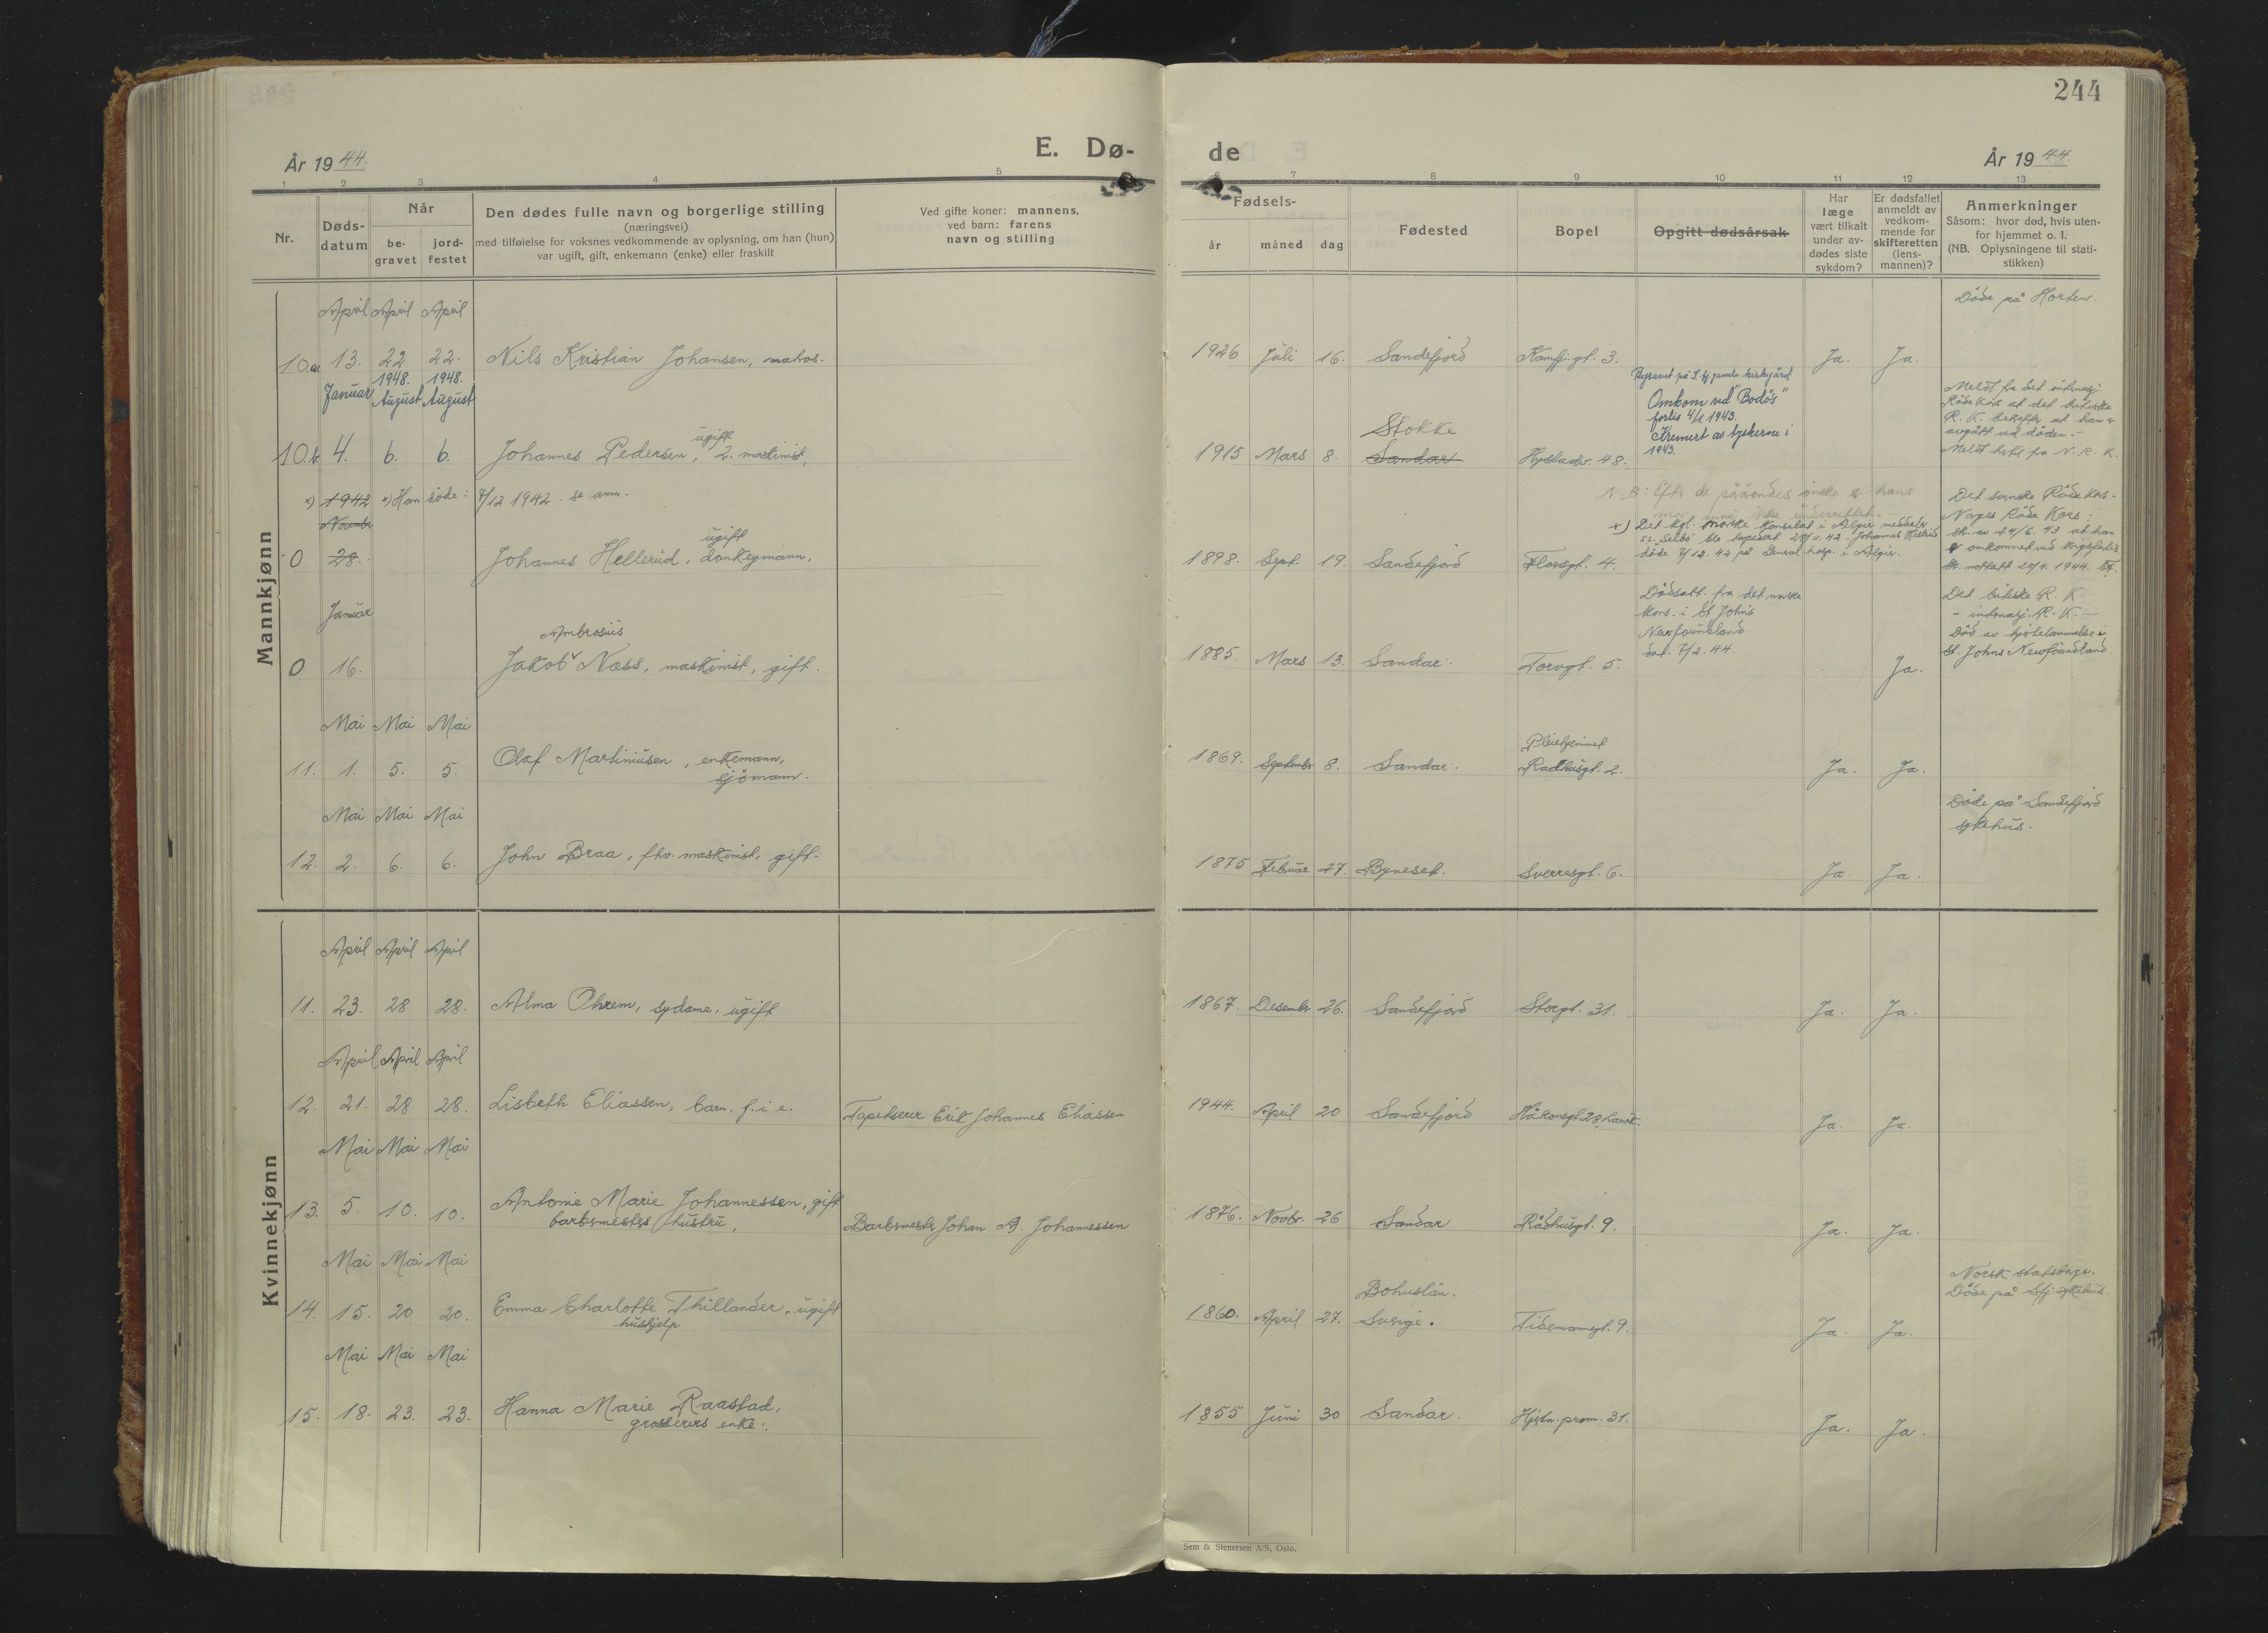 244
År 1944.
E. Dø-
de
År 1944.
1 2 3 4 5 6 7 8 9 10 11 12 13
Nr.
Døds-
datum
Når
be-
gravet
jord-
festet
Den dødes fulle navn og borgerlige stilling
(næringsvei)
med tilføielse for voksnes vedkommende av oplysning, om han (hun)
var ugift, gift, enkemann (enke) eller fraskilt
Ved gifte koner: mannens,
ved barn: farens
navn og stilling
Fødsels-
år måned dag
Fødested
Bopel
Opgitt dødsårsak
Har
læge
vært tilkalt
under av-
dødes siste
sykdom?
Er dødsfallet
anmeldt av
vedkom-
mende for
skifteretten
(lens-
mannen)?
Anmerkninger
Såsom: hvor død, hvis uten-
for hjemmet o. l.
(NB. Oplysningene til stati-
stikken)
Mannkjønn
April April April
Döde på Horten.
10.a. 13. 22 22. Nils Kristian Johansen, matros. 1926 Juli 16. Sandefjord Kamfj.gt. 3. Ja. Ja.
1948. 1948.
Januar August August
Begravet på S.fj. gamle kirkegård
Omkom ved "Bodös"
forlis 4/1 1943.
Kremert av tyskerne i
1943.
Meldt fra det internasj.
Röde Kors at det britiske
R. K. bekrefter at han er
avgått ved döden. -
Meldt hertil fra N. R. K.
ugift
Stokke
10.b. 4. 6. 6. Johannes Pedersen, 2. maskinist, 1915 Mars 8. Sandar 48.
x) 1942 x) Han döde: 7/12 1942. se anm.
November
N.B: Efter de pårörendes önske er hans
mor ikke underrettet.
x) Det kgl. norske Konsulat i Algir meddeler
ss. Selbö ble torpedert 28/11. 42. Johannes Hellerud
döde 7/12. 42 på General hosp. i Algir.
Det svenske Röde Kors -
Norges Röde Kors:
Skr. av 24/6. 43 at han
er omkommet ved krigsforlis
Skr. mottatt 20/4. 1944.
ugift
0 28. Johannes Hellerud, donkeymann. 1898. Sept. 19. Sandefjord Florsgt. 4.
Januar
Dödsatt. fra det norske
kons. i St. Johns
Newfoundland
dat. 7/2. 44.
Det britiske R. K.
- internasj. R. K. -
Död av hjertelammelse i
St. Johns Newfoundland.
Ambrosius
0 16. Jakob Næss, maskinist, gift. 1885. Mars 13. Sandar. Torvgt. 5. Ja.
Mai Mai Mai
Pleiehjemmet
11. 1. 5. 5. Olaf Martiniusen, enkemann, 1869. September 8. Sandar. Radhusgt. 2. Ja. Ja.
sjömann.
Mai Mai Mai
Döde på Sandefjord
sykehus.
12. 2. 6. 6. John Braa, fhv. maskinist, gift. 1875 Februar 27. Byneset. Sverresgt. 6. Ja. Ja.
Kvinnekjønn
April April April
11. 23. 28 28. Alma Ohrem, sydame, ugift 1867. Desember 26. Sandefjord Storgt. 31. Ja. Ja.
April April April
12. 21. 28 28. Lisbeth Eliassen, barn. f. i e. Tapetserer Erik Johannes Eliassen 1944. April 20 Sandefjord Håkonsgt. 28, Ja. Ja.
Mai Mai Mai
13. 5. 10. 10. Antonie Marie Johannessen, gift Barbermester Johan A. Johannessen 1876. Novbr. 26 Sandar Rådhusgt. 9. Ja. Ja.
barbermesters hustru,
Mai Mai Mai
Bohuslän.
Norsk statsborger.
Döde på Sfj. sykehus.
14. 15. 20 20. Emma Charlotte Thillander, ugift 1860. April 27. Sverige. Tidemannsgt. 9. Ja. Ja.
hushjelp
Mai Mai Mai
15. 18. 23. 23. Hanna Marie Raastad, 1855 Juni 30 Sandar. Hjertn. prom. 31. Ja. Ja.
grosserers enke.
Sem & Stenersen A/S, Oslo.